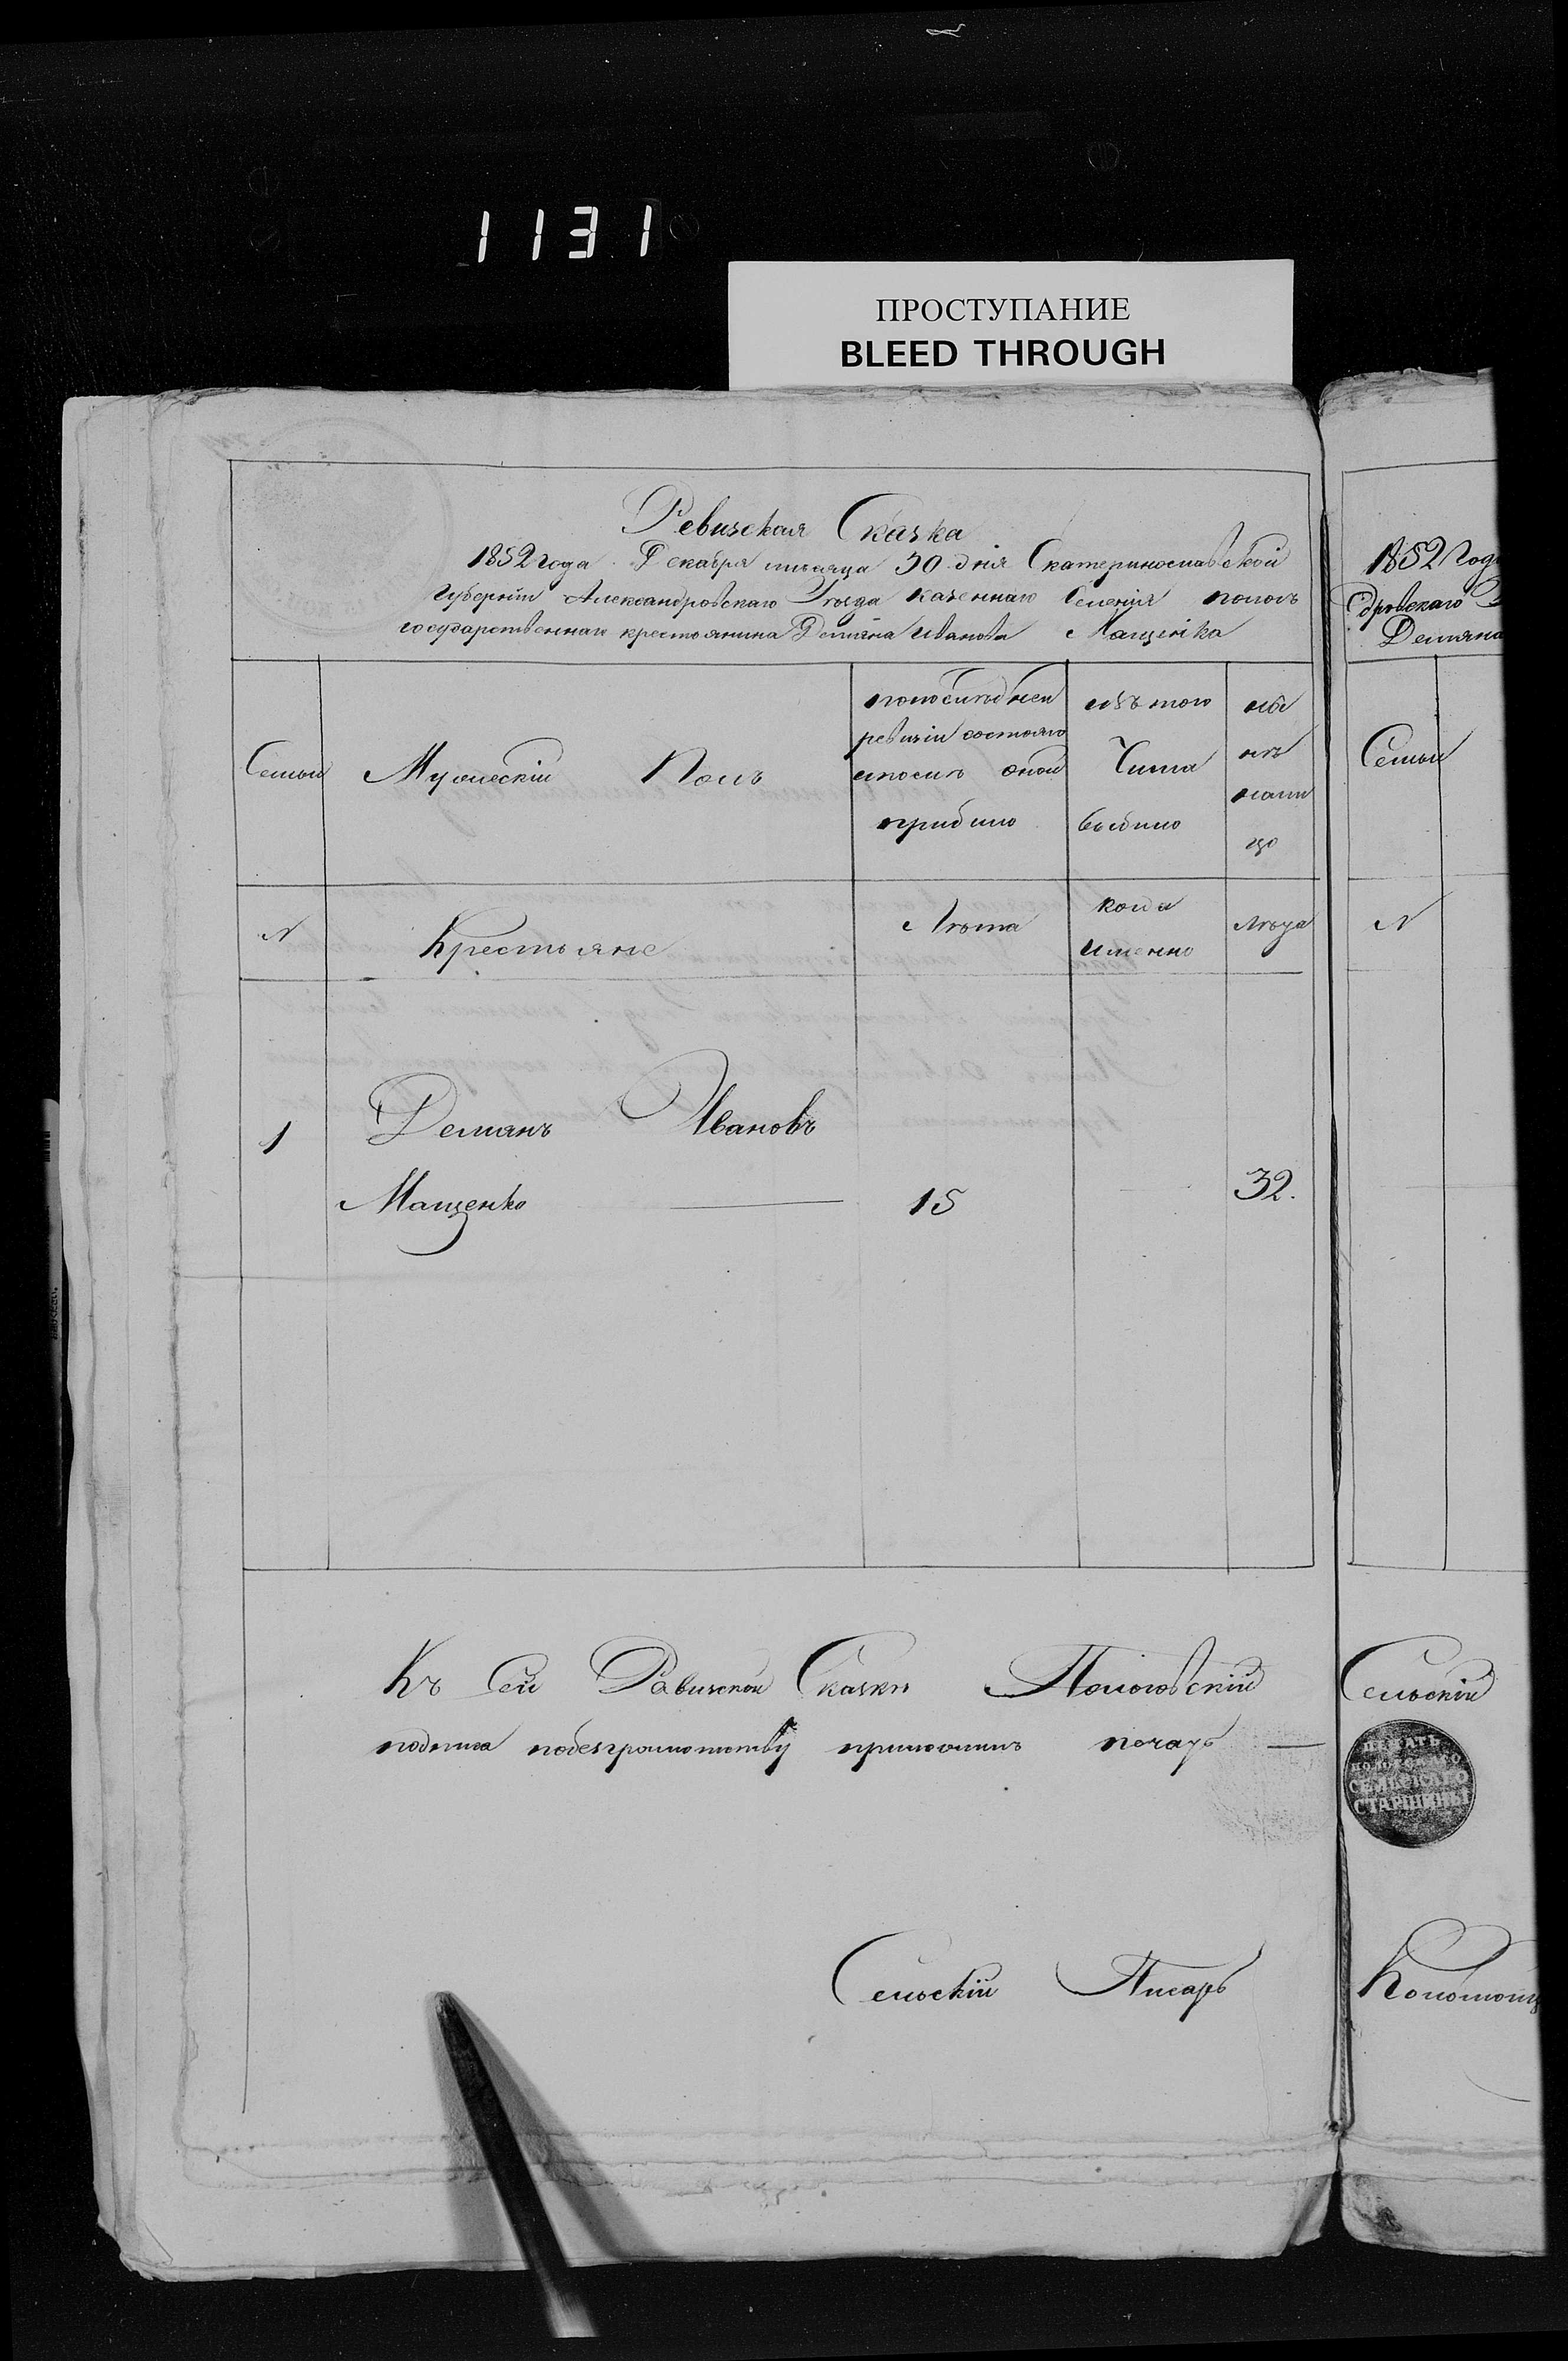 1131
ПРОСТУПАНИЕ
BLEED THROUGH
Ревизская Сказка
1852 года Декабря месяца 30 дня Екатеринославской
Губернии Александровскаго Уезда казеннаго Селения пологъ
государственнаго крестьянина Демяна Иванова Мащенка
Семьи
Мужескій Полъ
попоследней
ревизіи состояло
ипосле оной
прибыло
изътого
Числа
выбыло
ны
не
нали
цо
N
Крестьяне
Лета
когда
именно
Лета
1
Демянъ Ивановъ
Мащенко
15
32.
Къ Сей Равизской Сказке Пологовскій
побезграмотству приложилъ печать
Сельскій Писарь
1852 Года
дровскаго
Демяна
Семьи
N
Сельскій
ПЕЧАТЬ
СЕЛЬСКАГО
СТАРШИНЫ